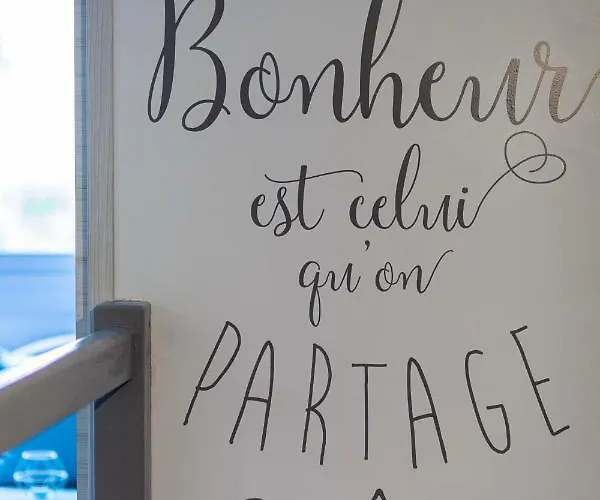 Bonheur
est celui
qu'on
PARTAGE